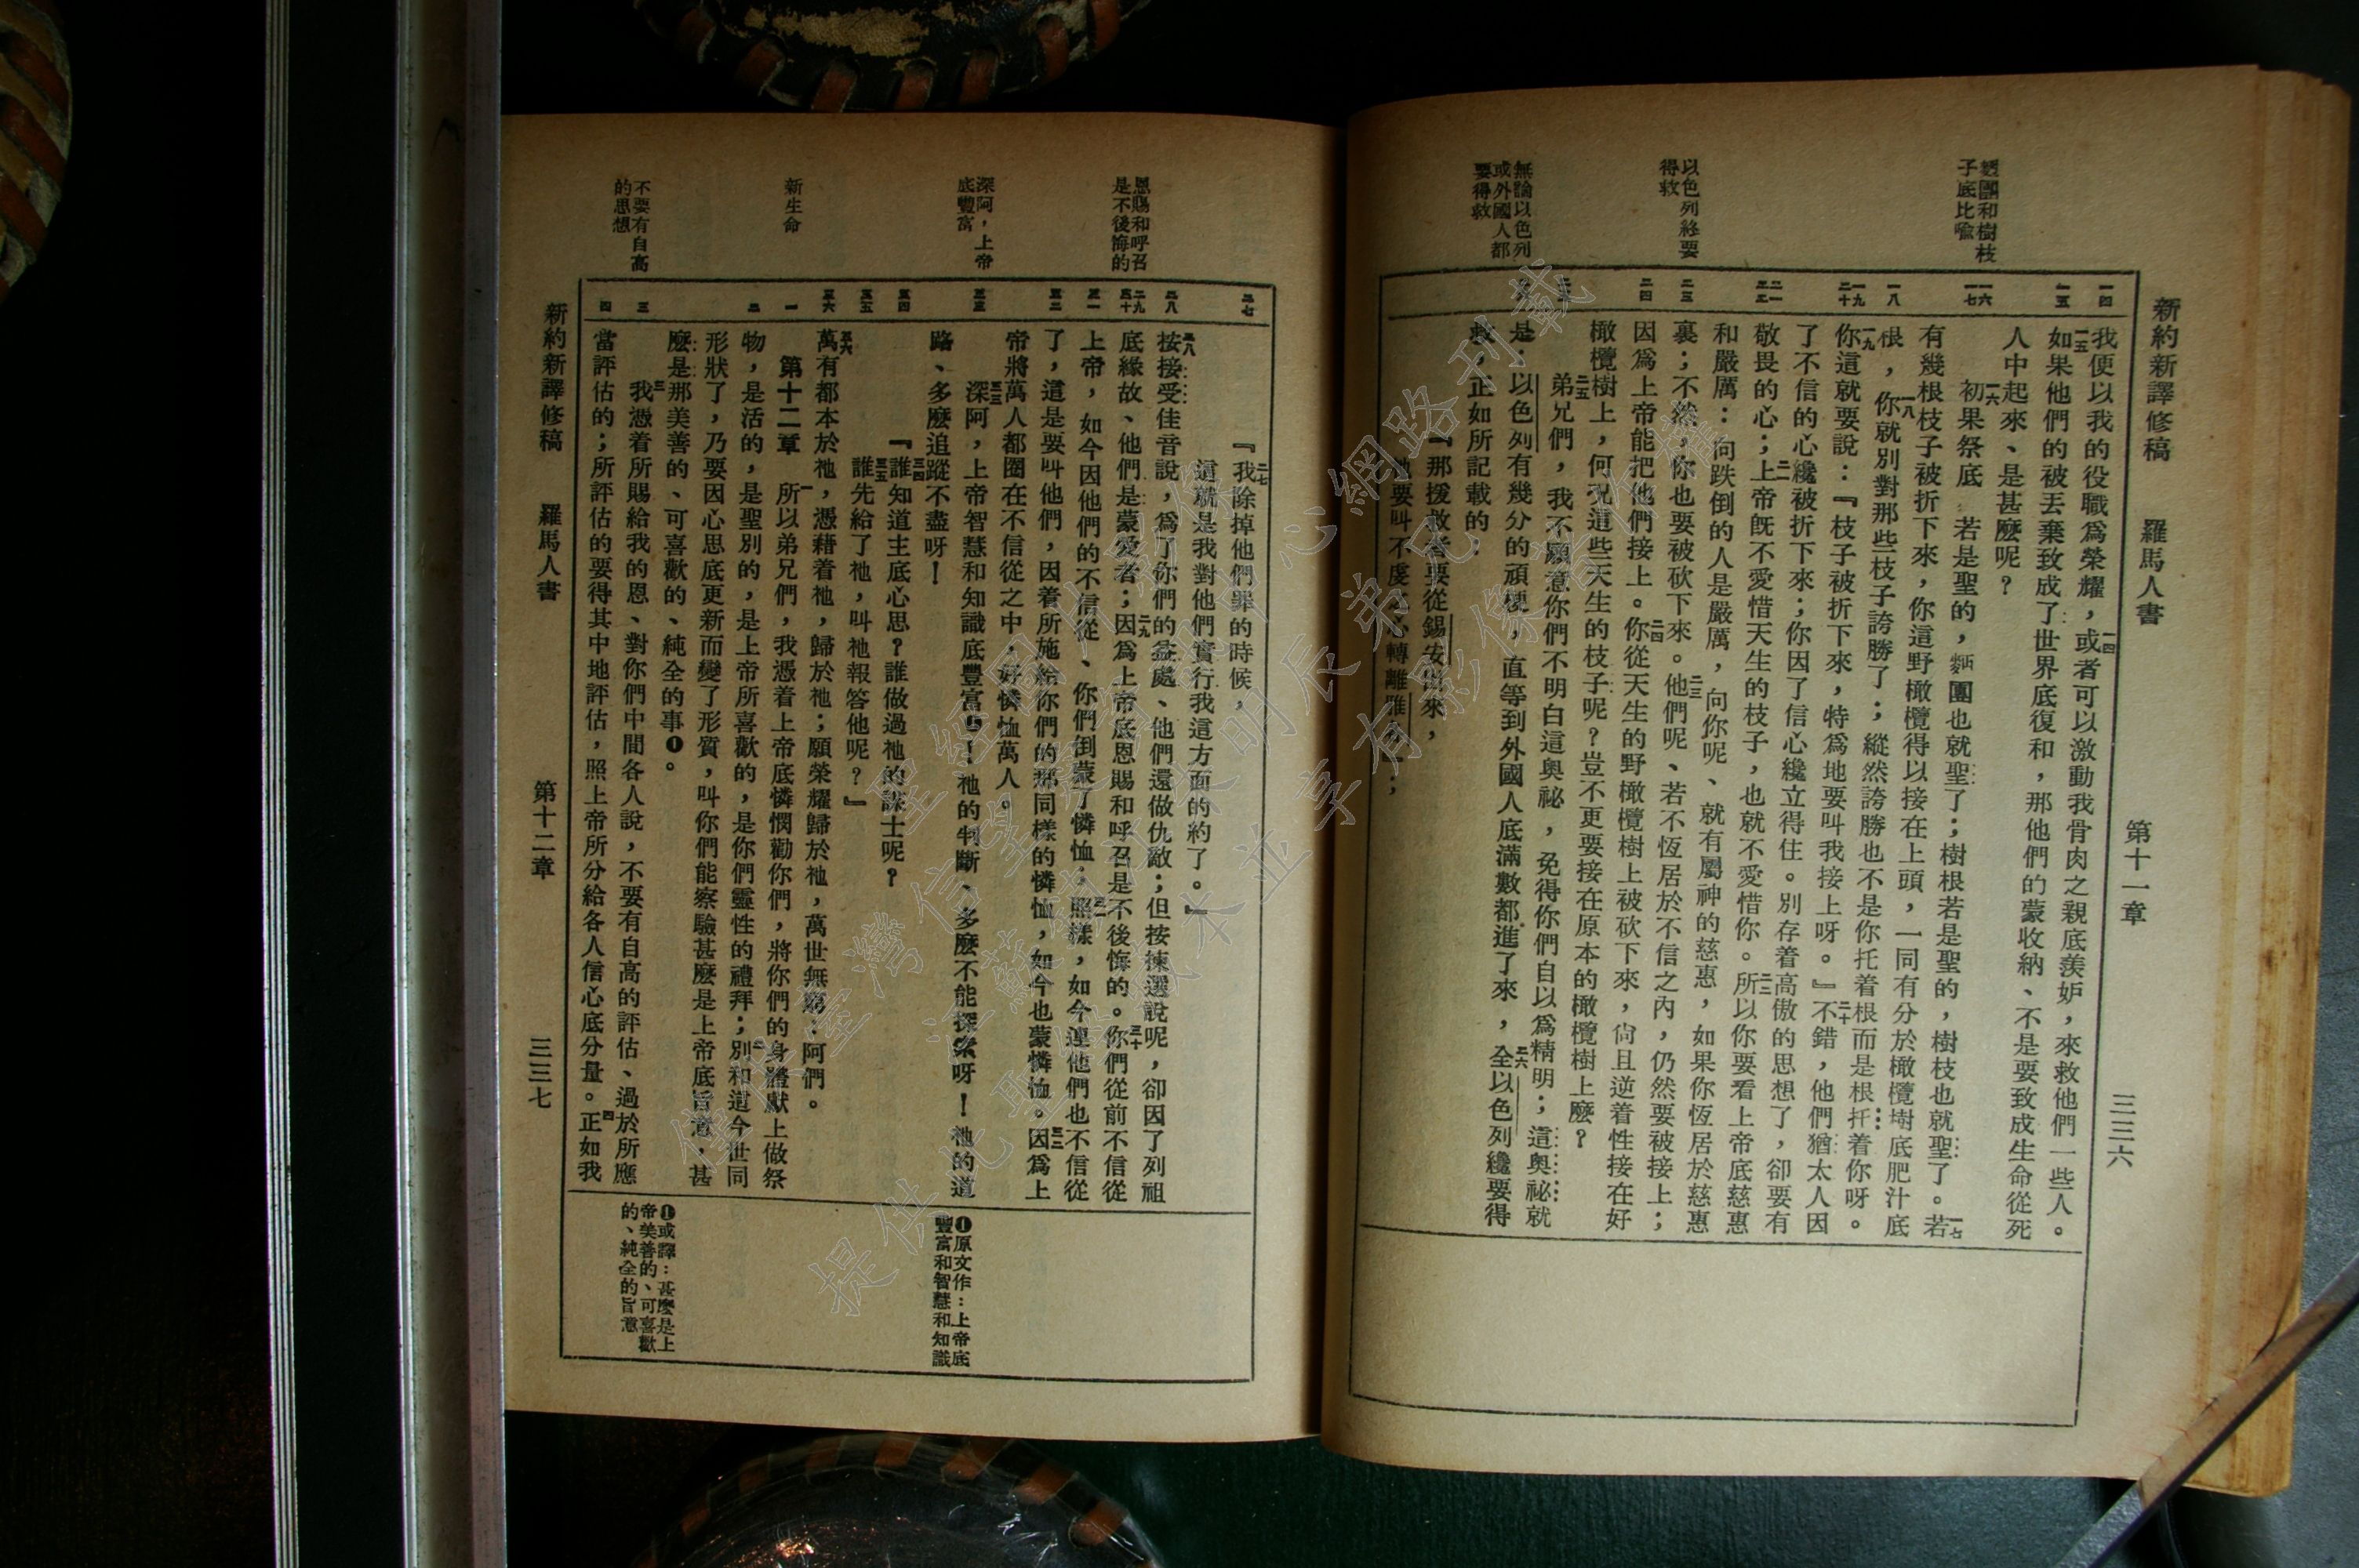 新約新譯修稿　羅馬人書　第十一章　三三六
麵團和樹枝
子底比喩
以色列終要
得救
無論以色列
或外國人都
要得救
一四
一五
一六
一七
一八
一九
二十
二一
二二
二三
二四
二五
我便以我的役職爲榮耀，一四或者可以激動我骨肉之親底羨妒，來救他們一些人。
一五如果他們的被丟棄致成了世界底復和，那他們的蒙收納、不是要致成生命從死
人中起來、是甚麼呢？
一六初果祭底　若是聖的，麵團也就聖了；樹根若是聖的，樹枝也就聖了。一七若
有幾根枝子被折下來，你這野橄欖得以接在上頭，一同有分於橄欖樹底肥汁底
根，一八你就別對那些枝子誇勝了；縱然誇勝也不是你托着根而是根扞着你呀。
一九你這就要說：『枝子被折下來，特爲地要叫我接上呀。』二十不錯，他們猶太人因
了不信的心纔被折下來；你因了信心纔立得住。別存着高傲的思想了，卻要有
敬畏的心；二一上帝旣不愛惜天生的枝子，也就不愛惜你。二二所以你要看上帝底慈惠
和嚴厲：向跌倒的人是嚴厲，向你呢、就有屬神的慈惠，如果你恆居於慈惠
裏；不然，你也要被砍下來。二三他們呢、若不恆居於不信之內，仍然要被接上；
因爲上帝能把他們接上。二四你從天生的野橄欖樹上被砍下來，尙且逆着性接在好
橄欖樹上，何況這些天生的枝子呢？豈不更要接在原本的橄欖樹上麼？
二五弟兄們，我不願意你們不明白這奧祕，免得你們自以爲精明；這奧祕就
是：以色列有幾分的頑梗，直等到外國人底滿數都進了來，二六全以色列纔要得
救，正如所記載的：
『那援救者要從錫安出來，
他要叫不虔之心轉離雅各；
恩賜和呼召
是不後悔的
深阿，上帝
底豐富
新生命
不要有自高
的思想
二七
二八
二九
三十
三一
三二
三三
三四
三五
三六
一
二
三
四
『二七我除掉他們罪的時候，
這就是我對他們實行我這方面的約了。』
二八按接受佳音說，爲了你們的益處、他們還做仇敵；但按揀選說呢，卻因了列祖
底緣故、他們是蒙愛者；二九因爲上帝底恩賜和呼召是不後悔的。三十你們從前不信從
上帝，如今因他們的不信從、你們倒蒙了憐恤；三一照樣，如今連他們也不信從
了，這是要叫他們，因着所施給你們的那同樣的憐恤，如今也蒙憐恤。三二因爲上
帝將萬人都圈在不信從之中，好憐恤萬人。
三三深阿，上帝智慧和知識底豐富❶！祂的判斷、多麼不能探索呀！祂的道
路、多麼追蹤不盡呀！
『三四誰知道主底心思？誰做過祂的謀士呢？
三五誰先給了祂，叫祂報答他呢？』
三六萬有都本於祂，憑藉着祂，歸於祂；願榮耀歸於祂，萬世無窮：阿們。
第十二章　一所以弟兄們，我憑着上帝底憐憫勸你們，將你們的身體獻上做祭
物，是活的，是聖別的，是上帝所喜歡的，是你們靈性的禮拜；二別和這今世同
形狀了，乃要因心思底更新而變了形質，叫你們能察驗甚麼是上帝底旨意，甚
麼是那美善的、可喜歡的、純全的事❶。
三我憑着所賜給我的恩、對你們中間各人說，不要有自高的評估、過於所應
當評估的；所評估的要得其中地評估，照上帝所分給各人信心底分量。四正如我
❶原文作：上帝底
豐富和智慧和知識
❶或譯：甚麼是上
帝美善的、可喜歡
的、純全的旨意
新約新譯修稿　羅馬人書　第十二章　三三七